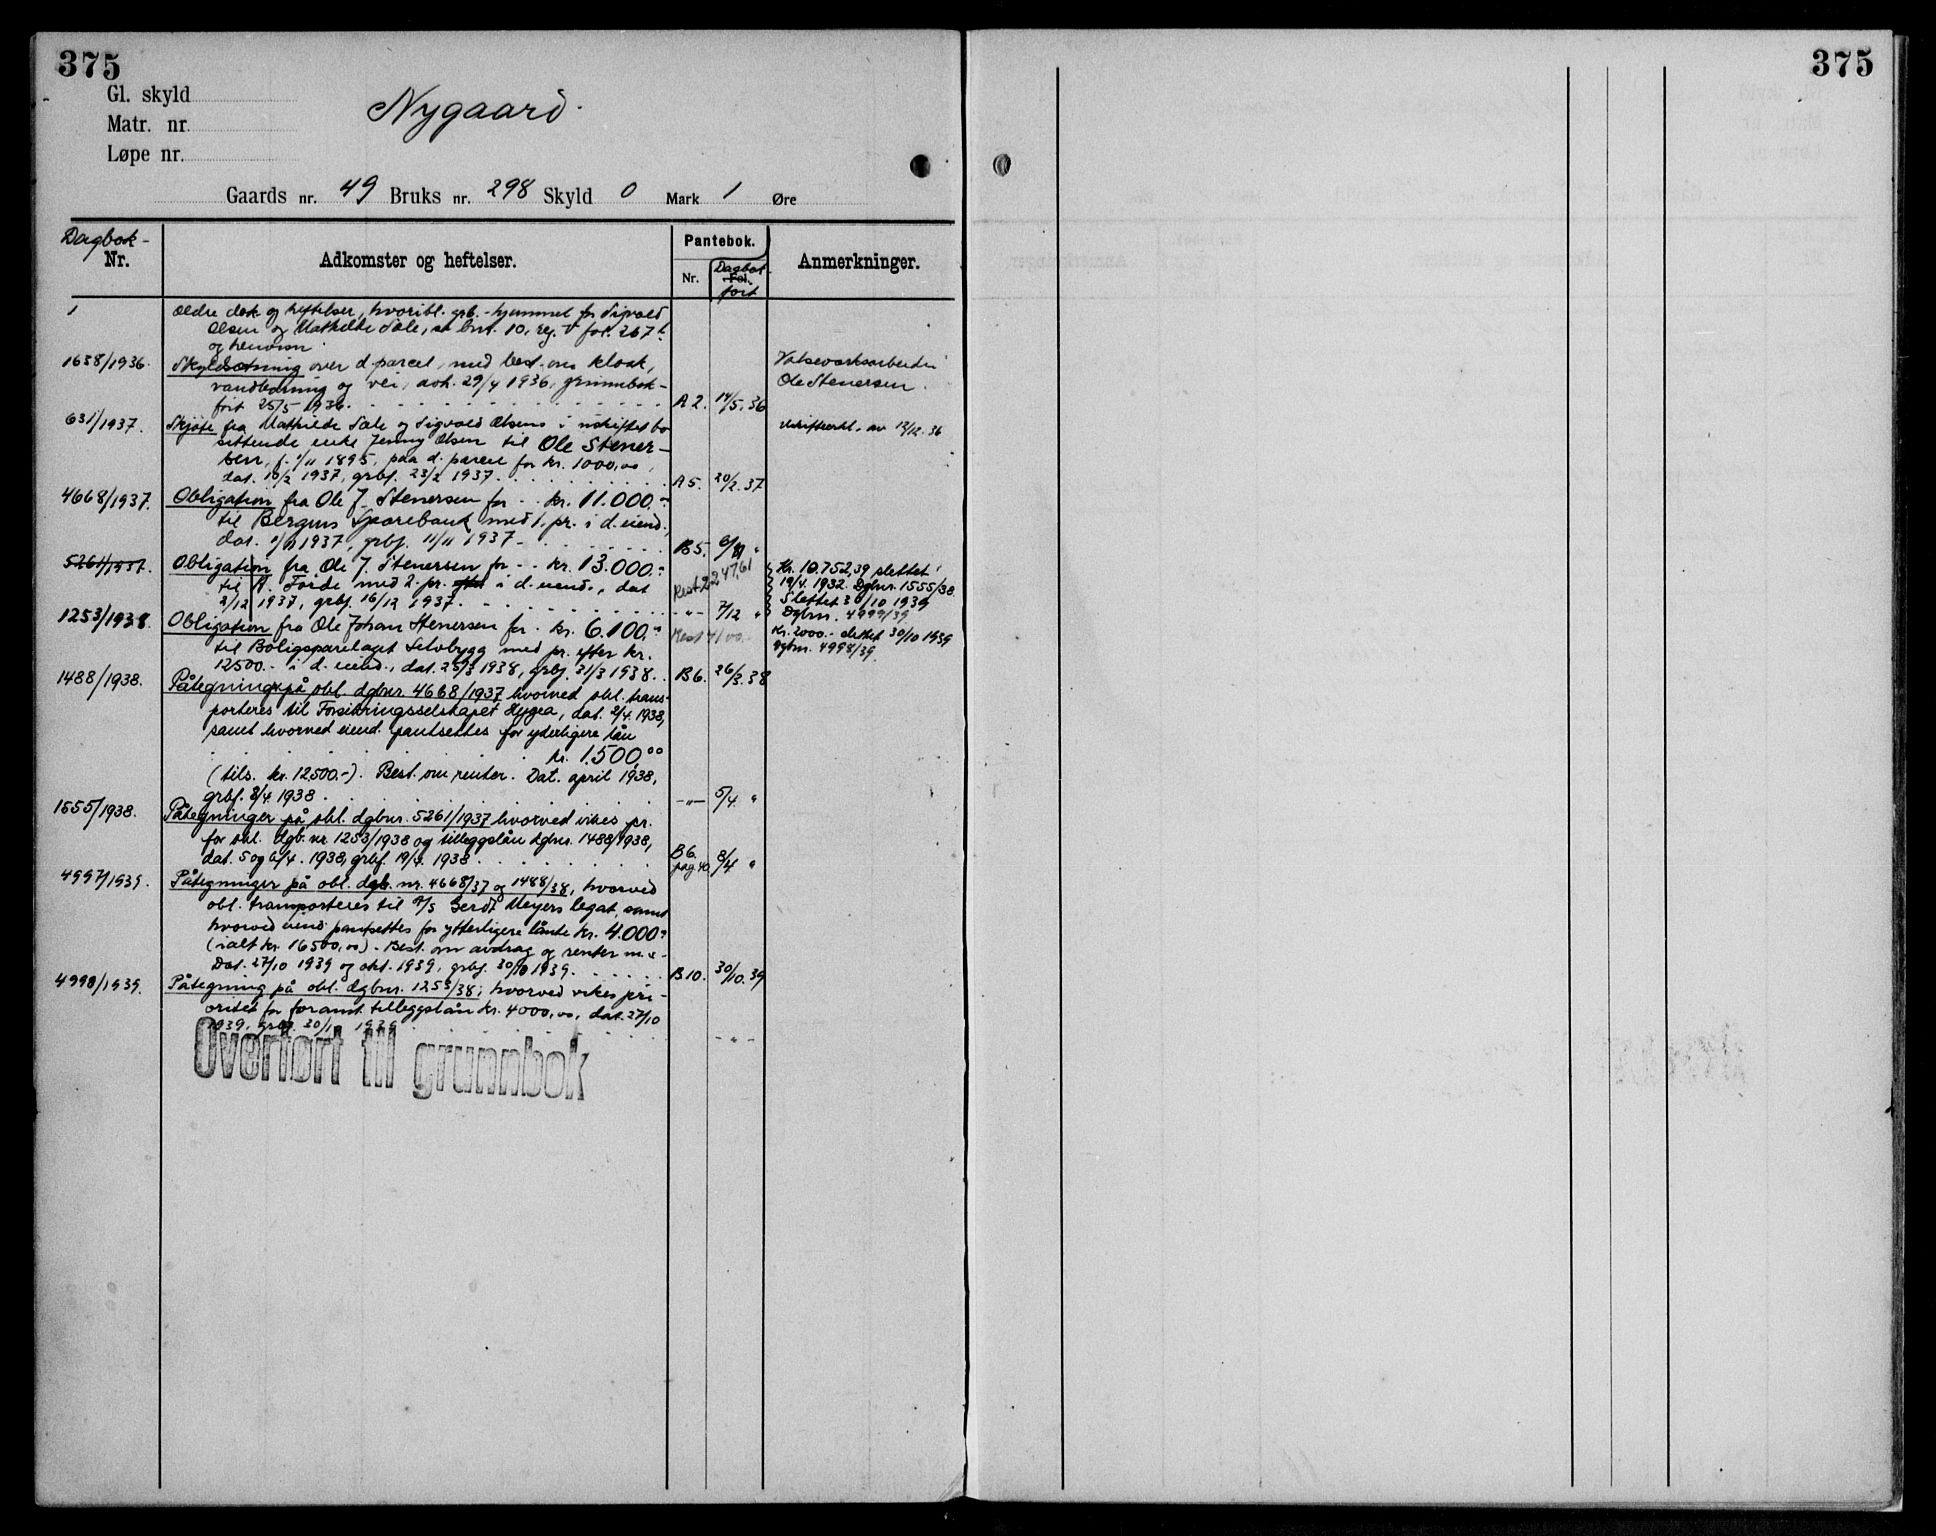 375
375
Gl. skyld
Matr. nr.
Løpe nr.
Nygaard.
Gaards nr. 49 Bruks nr. 298 Skyld 0 Mark 1 Øre
Dagbok-
Nr.
Adkomster og heftelser.
Pantebok.
Nr.
Dagbok-
Fol.
ført
Anmerkninger.
1
Ældre dok og heftelser, hvoribl. grb.-hjemmel for Sigvald
Olsen og Mathilde Sale, se bnr. 10, reg. V fol. 267 b
og henvisn.
1638/1936.
Skyldsætning over d. parcel, med best. om kloak,
vandledning og vei, avh. 29/4 1936, grunnbok-
ført 25/5 1936.
A 2. 14/5. 36
Ole Stenersen.
631/1937.
Skjøte fra Mathilde Sale og Sigvald Olsens i uskiftet bo
sittende enke Jenny Olsen til Ole Stener-
sen, f. 1/11 1895, paa d. parcel for kr. 1000,00,
dat. 18/2 1937, grbf. 23/2 1937.
A 5. 20/2. 37
skifteatt. av 12/12. 36
4668/1937.
Obligation fra Ole J. Stenersen for - - kr. 11.000.-
til Bergens Sparebank med 1. pr. i d. eiend.,
dat. 1/11 1937, grbf. 11/11 1937-
B 5. 6/11 "
5261/1937.
Obligation fra Ole J. Stenersen for - - kr. 13.000.-
til A. Førde med 2. pr. efter i d. eiend., dat
2/12 1937, grbf. 16/12 1937.
Rest 2247,61
- " - 7/12 "
Kr. 10.752,39 slettet
19/4. 1932. Dgbnr. 1555/38.
Slettet 30/10 1939
Dgbnr. 4999/39
1253/1938.
Obligation fra Ole Johan Stenersen for - kr. 6.100.-
til Boligsparelaget Selvbygg med pr. efter kr.
12500.- i d. eiend., dat. 25/3 1938, grbf. 31/3 1938.
Rest 4100.-
B 6. 26/3. 38
Kr. 2000.- slettet 30/10 1939
Dgbnr. 4998/39.
1488/1938.
Påtegninger på obl. dgbnr. 4668/1937 hvorved obl. trans-
porteres til Forsikringsselskapet Hygea, dat. 2/4. 1938,
samt hvorved eiend. pantsettes for yderligere lån
kr. 1.500,00
(tils. kr. 12500.-). Best. om renter. Dat. april 1938,
grbf. 8/4 1938
- " - 5/4 "
1555/1938.
Påtegninger på obl. dgbnr. 5261/1937 hvorved vikes pr.
for obl. dgb. nr. 1253/1938 og tilleggslån dgbnr. 1488/1938,
dat. 5 og 6/4. 1938, grbf. 19/4. 1938
B 6.
pag. 40. 8/4 "
4997/1939.
Påtegninger på obl. dgb. nr. 4668/37 og 1488/38, hvorved
obl. transporteres til A/S Gerdt Meyers legat, samt
hvorved eiend. pantsettes for ytterligere lånte kr. 4.000.-
(ialt kr. 16500,00). Best. om avdrag og renter m.v.-
Dat. 27/10 1939 og okt. 1939, grbf. 30/10 1939.
B 10. 30/10. 39
4998/1939.
Påtegning på obl. dgbnr. 1253/38, hvorved vikes pri-
oritet for foranst. tilleggslån kr. 4000,00, dat. 27/10
1939, grbf. 30/10 1939
- " -
Overført til grunnbok